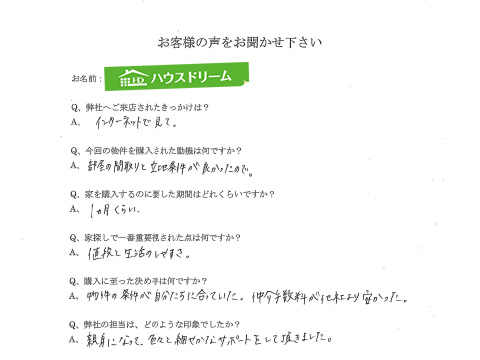 お客様の声をお聞かせ下さい
お名前：
HD ハウスドリーム
Q、弊社へご来店されたきっかけは？
A、 インターネットで見て。
Q、今回の物件を購入された動機は何ですか？
A、 部屋の間取りと立地条件が良かったので。
Q、家を購入するのに要した期間はどれくらいですか？
A、 1ヵ月くらい。
Q、家探しで一番重要視された点は何ですか？
A、 値段と生活のしやすさ。
Q、購入に至った決め手は何ですか？
A、 物件の条件が自分たちに合っていた。仲介手数料が他社より安かった。
Q、弊社の担当は、どのような印象でしたか？
A、 親身になって、色々と細やかなサポートをして頂きました。